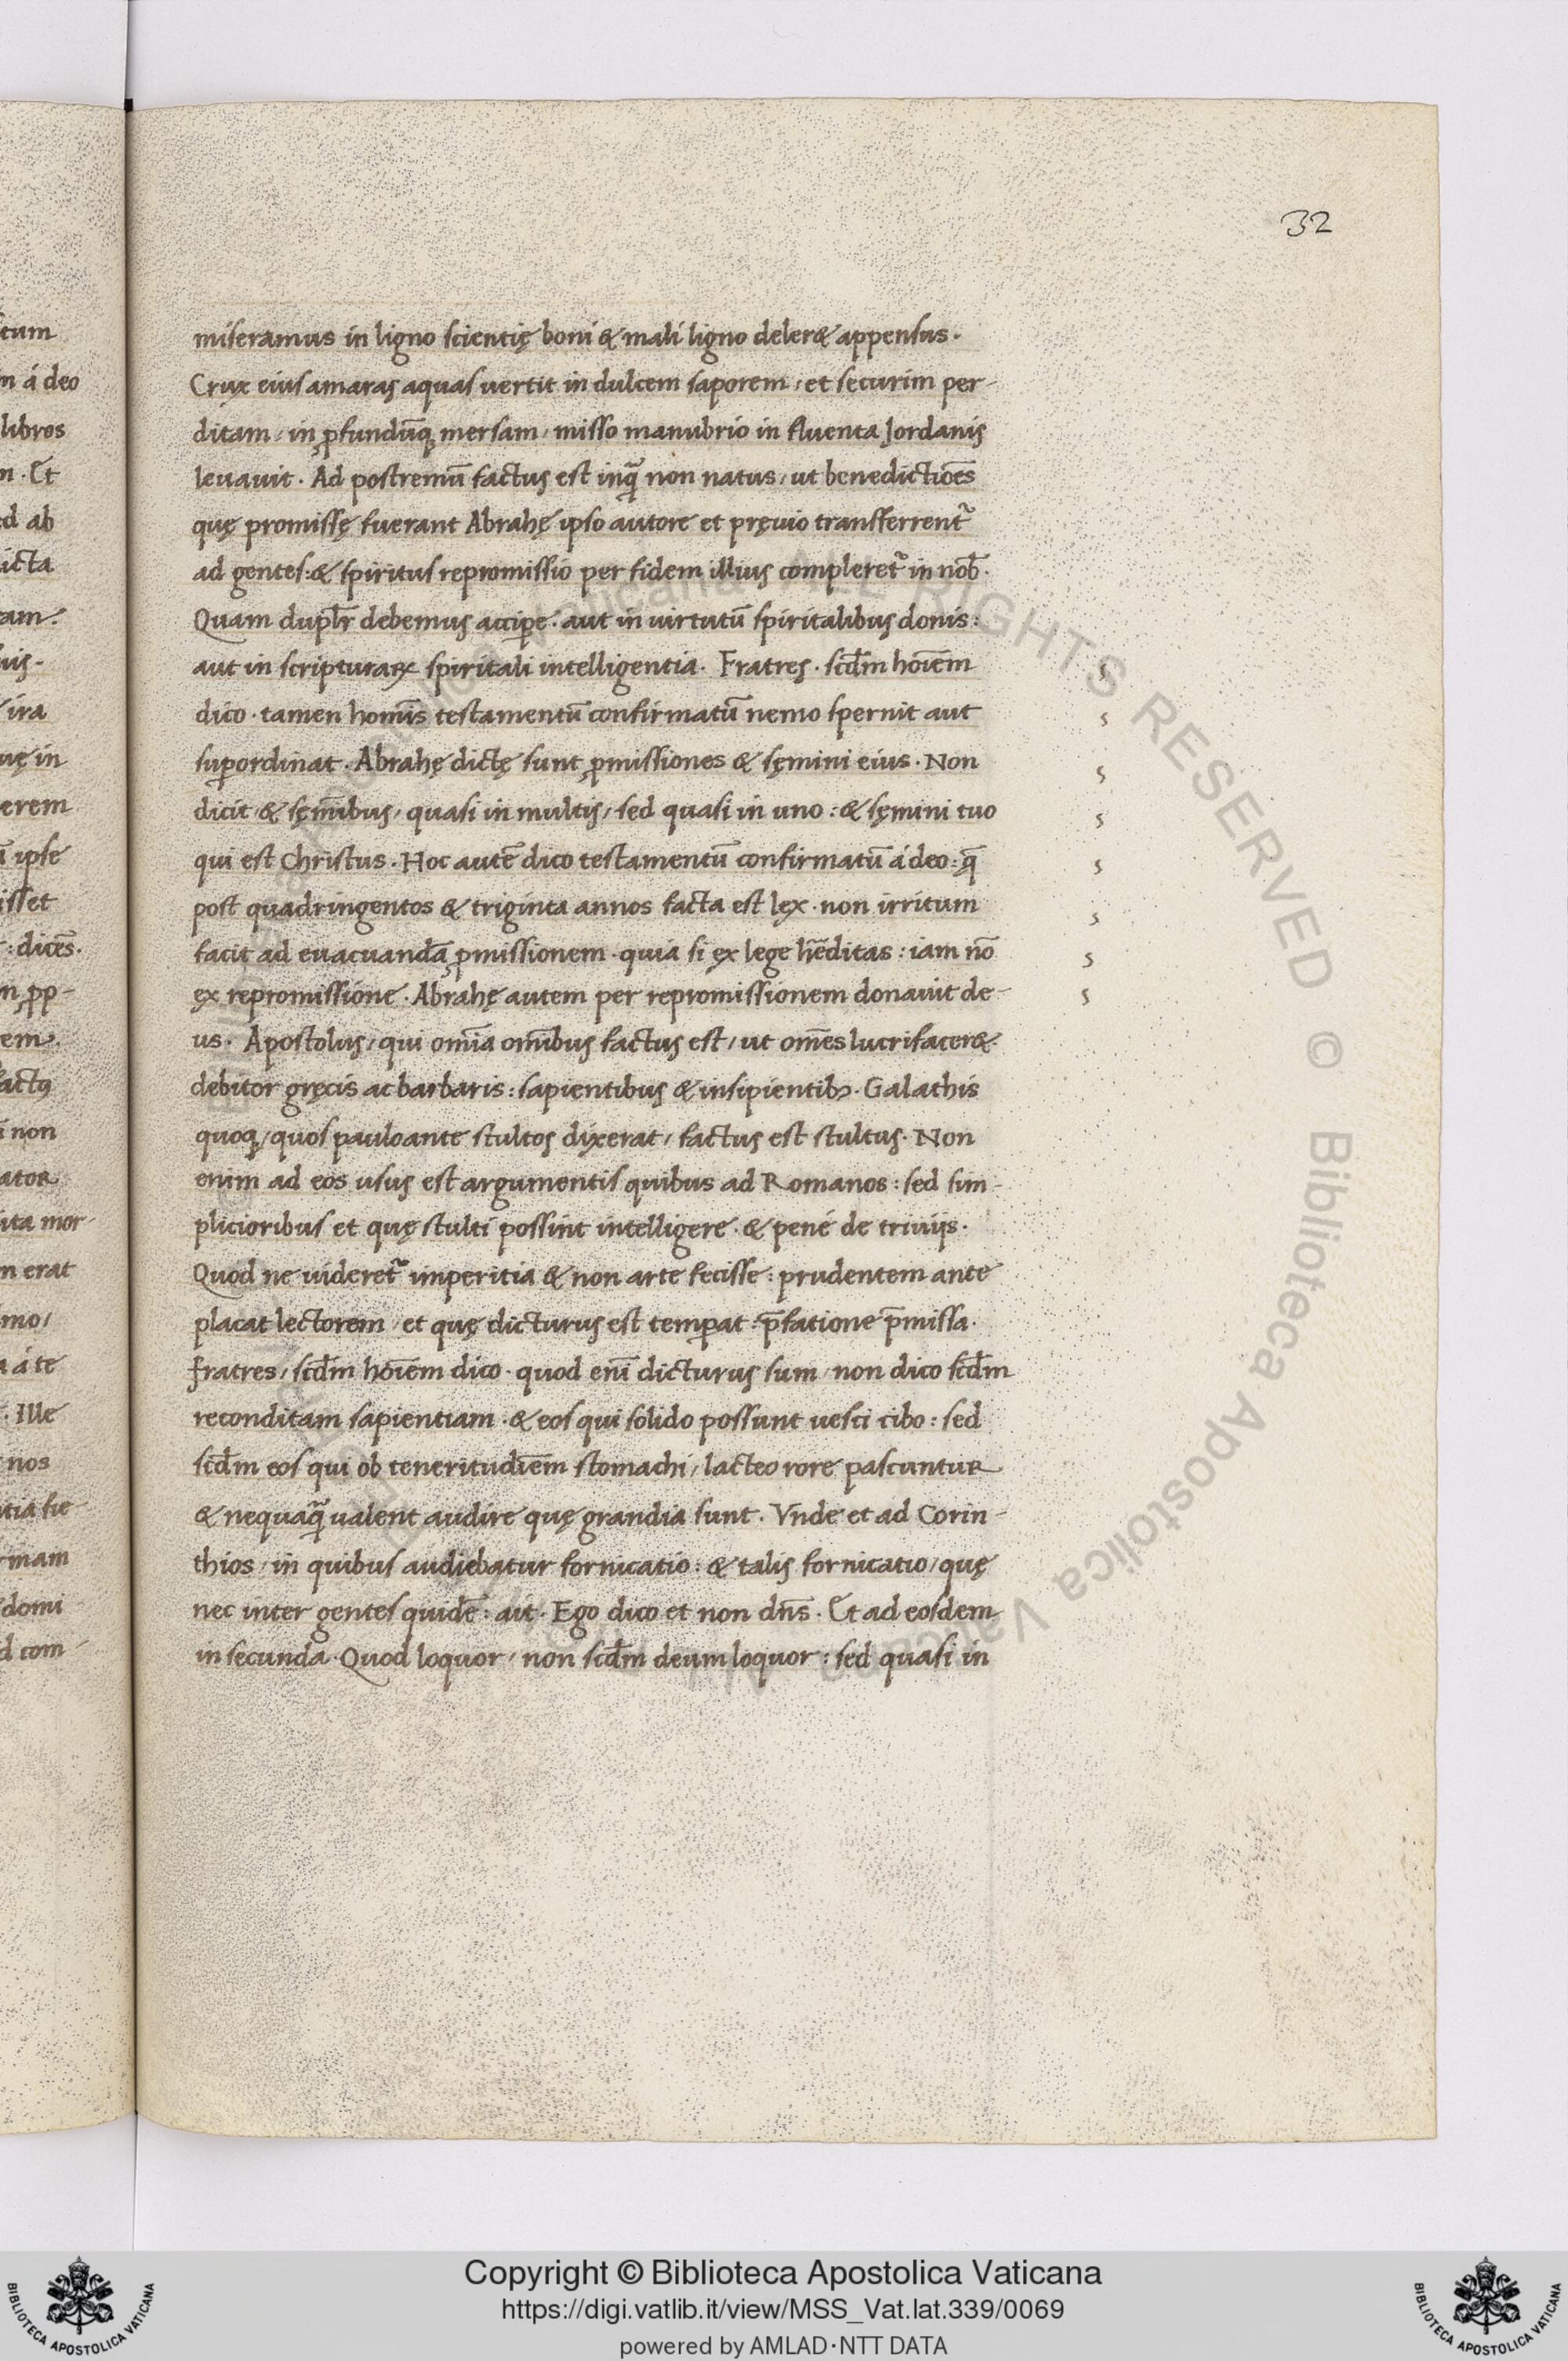 32
miseramus in ligno scientię boni & mali ligno deler& appensus.
Crux eius amaras aquas uertit in dulcem saporem, et securim per-
ditam, in ꝓfundūq; mersam, misso manubrio in fluenta Jordanis
leuauit. Ad postremū factus est inquā non natus, ut benedictiōes
quę promissę fuerant Abrahę ipso autore et pręuio transferrent᷑
ad gentes: & spiritus repromissio per fidem illius compleret᷑ in nob̄.
Quam dupl̄r debemus acciꝑe. aut in uirtutū spiritalibus donis:
aut in scripturaꝝ spiritali intelligentia. Fratres. scd̄m hoīem
dico. tamen homīs testamentū confirmatū nemo spernit aut
suꝑordinat. Abrahę dictę sunt ꝓmissiones & sęmini eius. Non
dicit, & sęmībus, quasi in multis, sed quasi in uno: & sęmini tuo
qui est Christus. Hoc autē dico testamentū confirmatū á deo: q̄
post quadringentos & triginta annos facta est lex. non irritum
facit ad euacuandā ꝓmissionem. quia si ex lege hēditas: iam nō
ex repromissione. Abrahę autem per repromissionem donauit de-
us. Apostolus, qui omīa omībus factus est, ut omēs lucrifacer&
debitor gręcis ac barbaris: sapientibus & insipientibꝫ. Galathis
quoq;, quos pauloante stultos dixerat, factus est stultus. Non
enim ad eos usus est argumentis quibus ad Romanos: sed sim-
plicioribus et quę stulti possint intelligere. & pené de triuijs.
Quod ne uideret᷑ imperitia & non arte fecisse: prudentem ante
placat lectorem, et quę dicturus est temꝑat. p̄fatione p̄missa.
fratres, scd̄m hoīem dico. quod enī dicturus sum, non dico scd̄m
reconditam sapientiam. & eos qui solido possunt uesci cibo: sed
scd̄m eos qui ob teneritudīem stomachi, lacteo rore pascuntur
& nequaquā ualent audire quę grandia sunt. Vnde et ad Corin-
thios, in quibus audiebatur fornicatio: & talis fornicatio, quę
nec inter gentes quidē: ait. Ego dico et non dn̄s. Et ad eosdem
in secunda. Quod loquor, non scd̄m deum loquor: sed quasi in
Copyright © Biblioteca Apostolica Vaticana
https://digi.vatlib.it/view/MSS_Vat.lat.339/0069
powered by AMLAD·NTT DATA